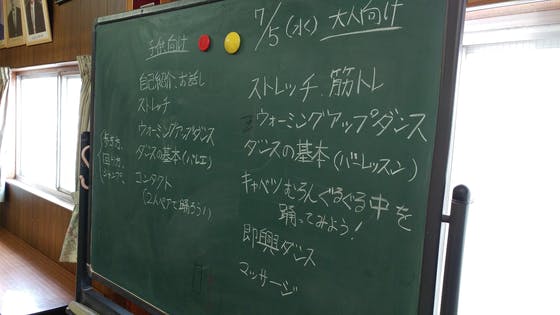 子供向け
自己紹介、お話し
ストレッチ
ウォーミングアップダンス
ダンスの基本(バレエ)
歩き方、
回り方、
ジャンプ、
コンタクト
(2人ペアで踊ろう!)
7/5(水) 大人向け
ストレッチ、筋トレ
ウォーミングアップダンス
ダンスの基本(バーレッスン)
キャベツむろんぐるぐる中を
踊ってみよう!
即興ダンス
マッサージ